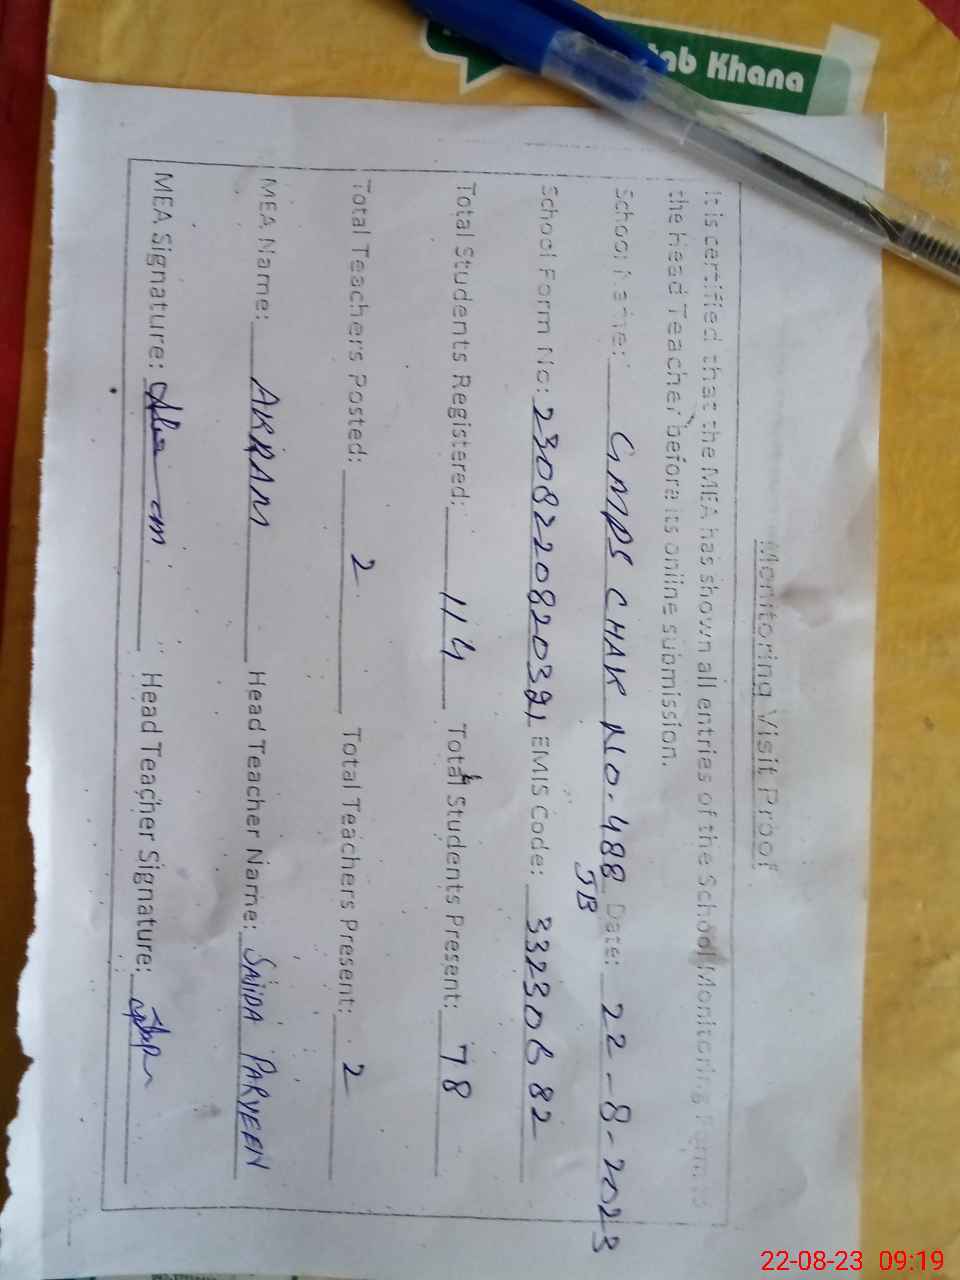 tab Khana
Monitoring Visit Proof
It is certified that the MEA has shown all entries of the School Monitoring Form to
the Head Teacher before its online submission.
School Name: GMPS CHAK NO. 488 JB Date: 22-8-2023
School Form No: EMIS Code: 33230682
Total Students Registered: 114 Total Students Present: 78
Total Teachers Posted: 2 Total Teachers Present: 2
MEA Name: AKRAM Head Teacher Name: SAJIDA PARVEEN
MEA Signature: Head Teacher Signature:
22-08-23 09:19